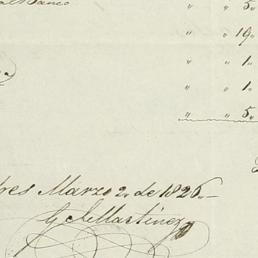 Banco " " 5
" " 19
" " 1
" " 1
" " 5
Marzo 2 de 1826
Martinez